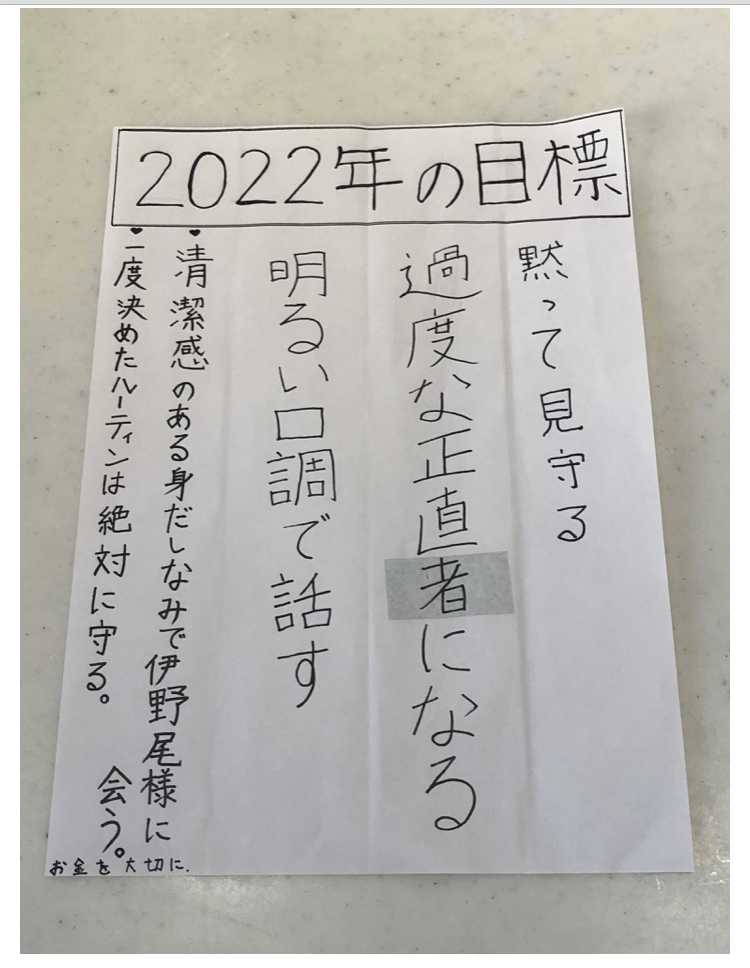 2022年の目標
黙って見守る
過度な正直者になる
明るい口調で話す
♥清潔感のある身だしなみで伊野尾様に
会う。
♥一度決めたルーティンは絶対に守る。
お金を大切に.